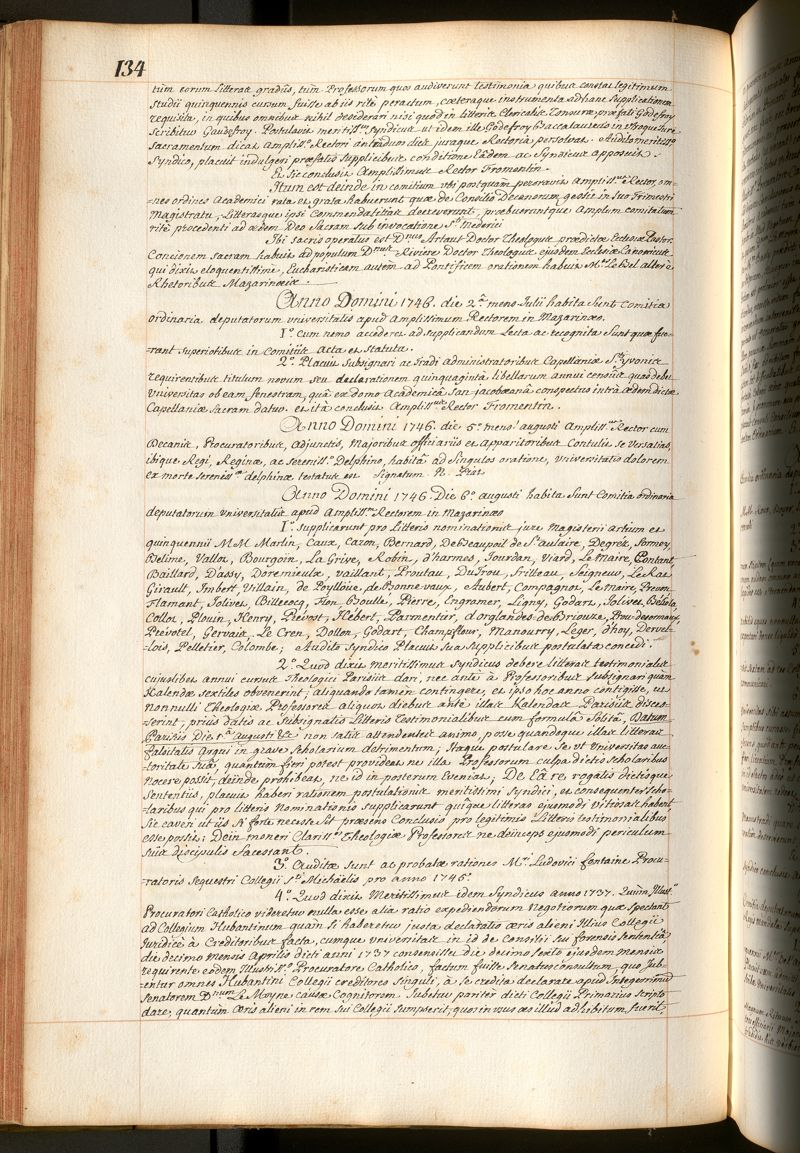 134
tùm eorum Litteraæ gradûs, tùm Professorum quos audiverunt testimonia quibus constat legitimum
studii quinquennis cursum fuisse ab iis ritè peractum, cæteraque instrumenta ad hanc Supplicationem
requisita, in quibus omnibus nihil desiderari nisi quod in Litteris Clericalis Tonsuræ, præfati Godefroy
scribitur Gaudefroy. Postulavit meritiss.us Syndicus ut idem ille Godefroy Baccalaureus in utroque Jure
sacramentum dicat Ampliss.o Rectori an Iradum dict. juraque Rectoria persolvat. Audito meritiss.o
Syndico, placuit indulgeri præfatis supplicibus conditione Eâdem ac Syndicus apposuit.
Et sic conclusit Amplissimus Rector Fromentin.
Itum est deinde in comitium ubi postquam peroravit Ampliss.us Rector, om-
-nes ordines Academici rata et grata habuerunt quæ de Concilio Decanorum gessit in suo Trimestri
Magistratu, Litterasque ipsi Commendatitias decreverunt, præbueruntque Amplum comitatum
ritè procedenti ad ædem Deo Sacram sub invocatione S.ti Mederici
Ibi sacris operatus est D.nus Artaut Doctor Theologus prædictæ Ecclesiæ Pastor.
Concionem sacram habuit ad populum D.nus Riviere Doctor Theologus ejusdem Ecclesiæ Canonicus
qui dixit eloquentissimè, Eucharisticam autem ad Pontificem orationem habuit M.r Le Bel alter è
Rhetoribus Mazarinæis.
Anno Domini 1746. die 2.a mens. Julii habita Sunt Comitia
ordinaria deputatorum universitatis apud Amplissimum Rectorem in Mazarinæo.
1.o Cum nemo accederet ad supplicandum Lecta ac recognita Sunt quæ fue-
-rant superioribus in Comitiis acta et statuta.
2.o Placuit Subsignari ac tradi administratoribus Capellaniæ S.ti yvonis
requirentibus titulum novum seu declarationem quinquaginta libellarum annui censûs quas debet
universitas ob eam fenestram, quâ ex domo Academicâ San-jacobæanâ conspectus intrà ædem dictæ
Capellaniæ Sacram datur. et ità conclusit Ampliss.us Rector Fromentin.
Anno Domini 1746. die 5.a mens. augusti Ampliss.us Rector cum
Decanis, Procuratoribus, Adjunctis, Majoribus officiariis et Apparitoribus Contulit se Versalias,
ibique Regi, Reginæ, ac sereniss.o Delphino, habitâ ad Singulos oratione, universitatis dolorem
ex morte sereniss.æ delphinæ testatus est Signatum N. Piat
Anno Domini 1746. Die 6.a augusti habita Sunt Comitia ordinaria
deputatorum universitatis apud Ampliss.um Rectorem in Mazarinæo
1.o supplicarunt pro Litteris nominationis jure Magisterii Artium et
quinquennii M.M. Martin, Caux, Cazon, Bernard, DeBeaupoil de S.t aulaire, Degrez, Formey,
Belime, Vallot, Bourgoin, La Grive, Robin, d'harmes, Jourdan, Viard, Le Maire, Contant,
Baillard, Dassy, Doremieulx, vaillant, Proutau, DuTrou, Frilleau, Seigneur, Le Rat
Girault, Imbert, Villain, de Poylloüe, de Bonnevaux, Aubert, Compagnot, Le Maire, Preum,
Flamant, Jolivet, Billecocq, Flon, Boulle, Pierre, Engramer, Ligny, Godart, Jolivet,
Collot, Plouin, Henry, Prévost, Hébert, Parmentier, d'orglandes de Briouze, Prou-desormaux,
Prévotel, Gervais, Le Cren, Dollon, Godart, Champflour, Manourry, Léger, d'hoy, Dervel-
-lois, Pelletier, Colombe; Audito Syndico Placuit sua supplicibus postulata concedi.
2.o Quod dixit meritissimus Syndicus debere litteras testimoniales
cujuslibet anni cursus Theologici Parisiis dari, nec antè à Professoribus subsignari quàm
Kalendæ sextiles obvenerint; aliquando tamen contingere, et ipso hoc anno contigisse, ut
nonnulli Theologiæ Professores aliquot diebus antè illas Kalendas Parisiis disces-
-serint, priùs datis ac Subsignatis Litteris Testimonialibus cum formulâ solitâ, Datum
Parisiis Die 1.a augusti &c non satis attendentes animo, posse quandoque illas litteras
falsitatis argui in grave Scholarium detrimentum; Itaque postulare Se ut Universitas auc-
toritate Suâ, quantum fieri potest provideat ne illa Professorum culpa dictis scholaribus
nocere possit, deinde prohibeat, ne id in posterum Eveniat; De Eâ re, rogatis dictisque
Sententiis, placuit haberi rationem postulationis meritissimi Syndici, et consequenter scho-
-laribus qui pro litteris Nominationis supplicarunt quique litteras ejusmodi vitiosas habent
Sic caveri ut iis si fortè necesse sit præsens Conclusio pro legitimis Litteris testimonialibus
esse possit; Dein moneri Clariss.os Theologiæ Professores ne deinceps ejusmodi periculum
suis discipulis facessant.
3.o Auditæ sunt ac probatæ rationes M.ri Ludovici fontaine Procu-
-ratoris sequestri Collegii S.ti Michaëlis pro anno 1745.
4.o Quod dixit Meritissimus idem Syndicus anno 1737. Quùm Illust.o
Procuratori Catholico videretur nulla esse alia ratio expediendorum Negotiorum quæ spectant
ad Collegium Hubantinum quàm si haberetur justa declaratio æris alieni Illius Collegii
Juridicè à Creditoribus facta, cumque universitas in id de Consilii sui forensis sententiâ
die decimo mensis Aprilis dicti anni 1737 consensisset die decimo sexto ejusdem mensis
requirente eodem Illustriss.o Procuratore Catholico, factum fuisse Senatusconsultum, quo jub-
entur omnes Hubantini Collegii creditores singuli, à se credita declarare apud Integerrimum
Senatorem D.num Le Moyne causæ Cognitorem. Jubetur pariter dicti Collegii Primarius scripto
dare, quantum æris alieni in rem sui Collegii sumpserit, quos in usus æs illud adhibitum fuerit,